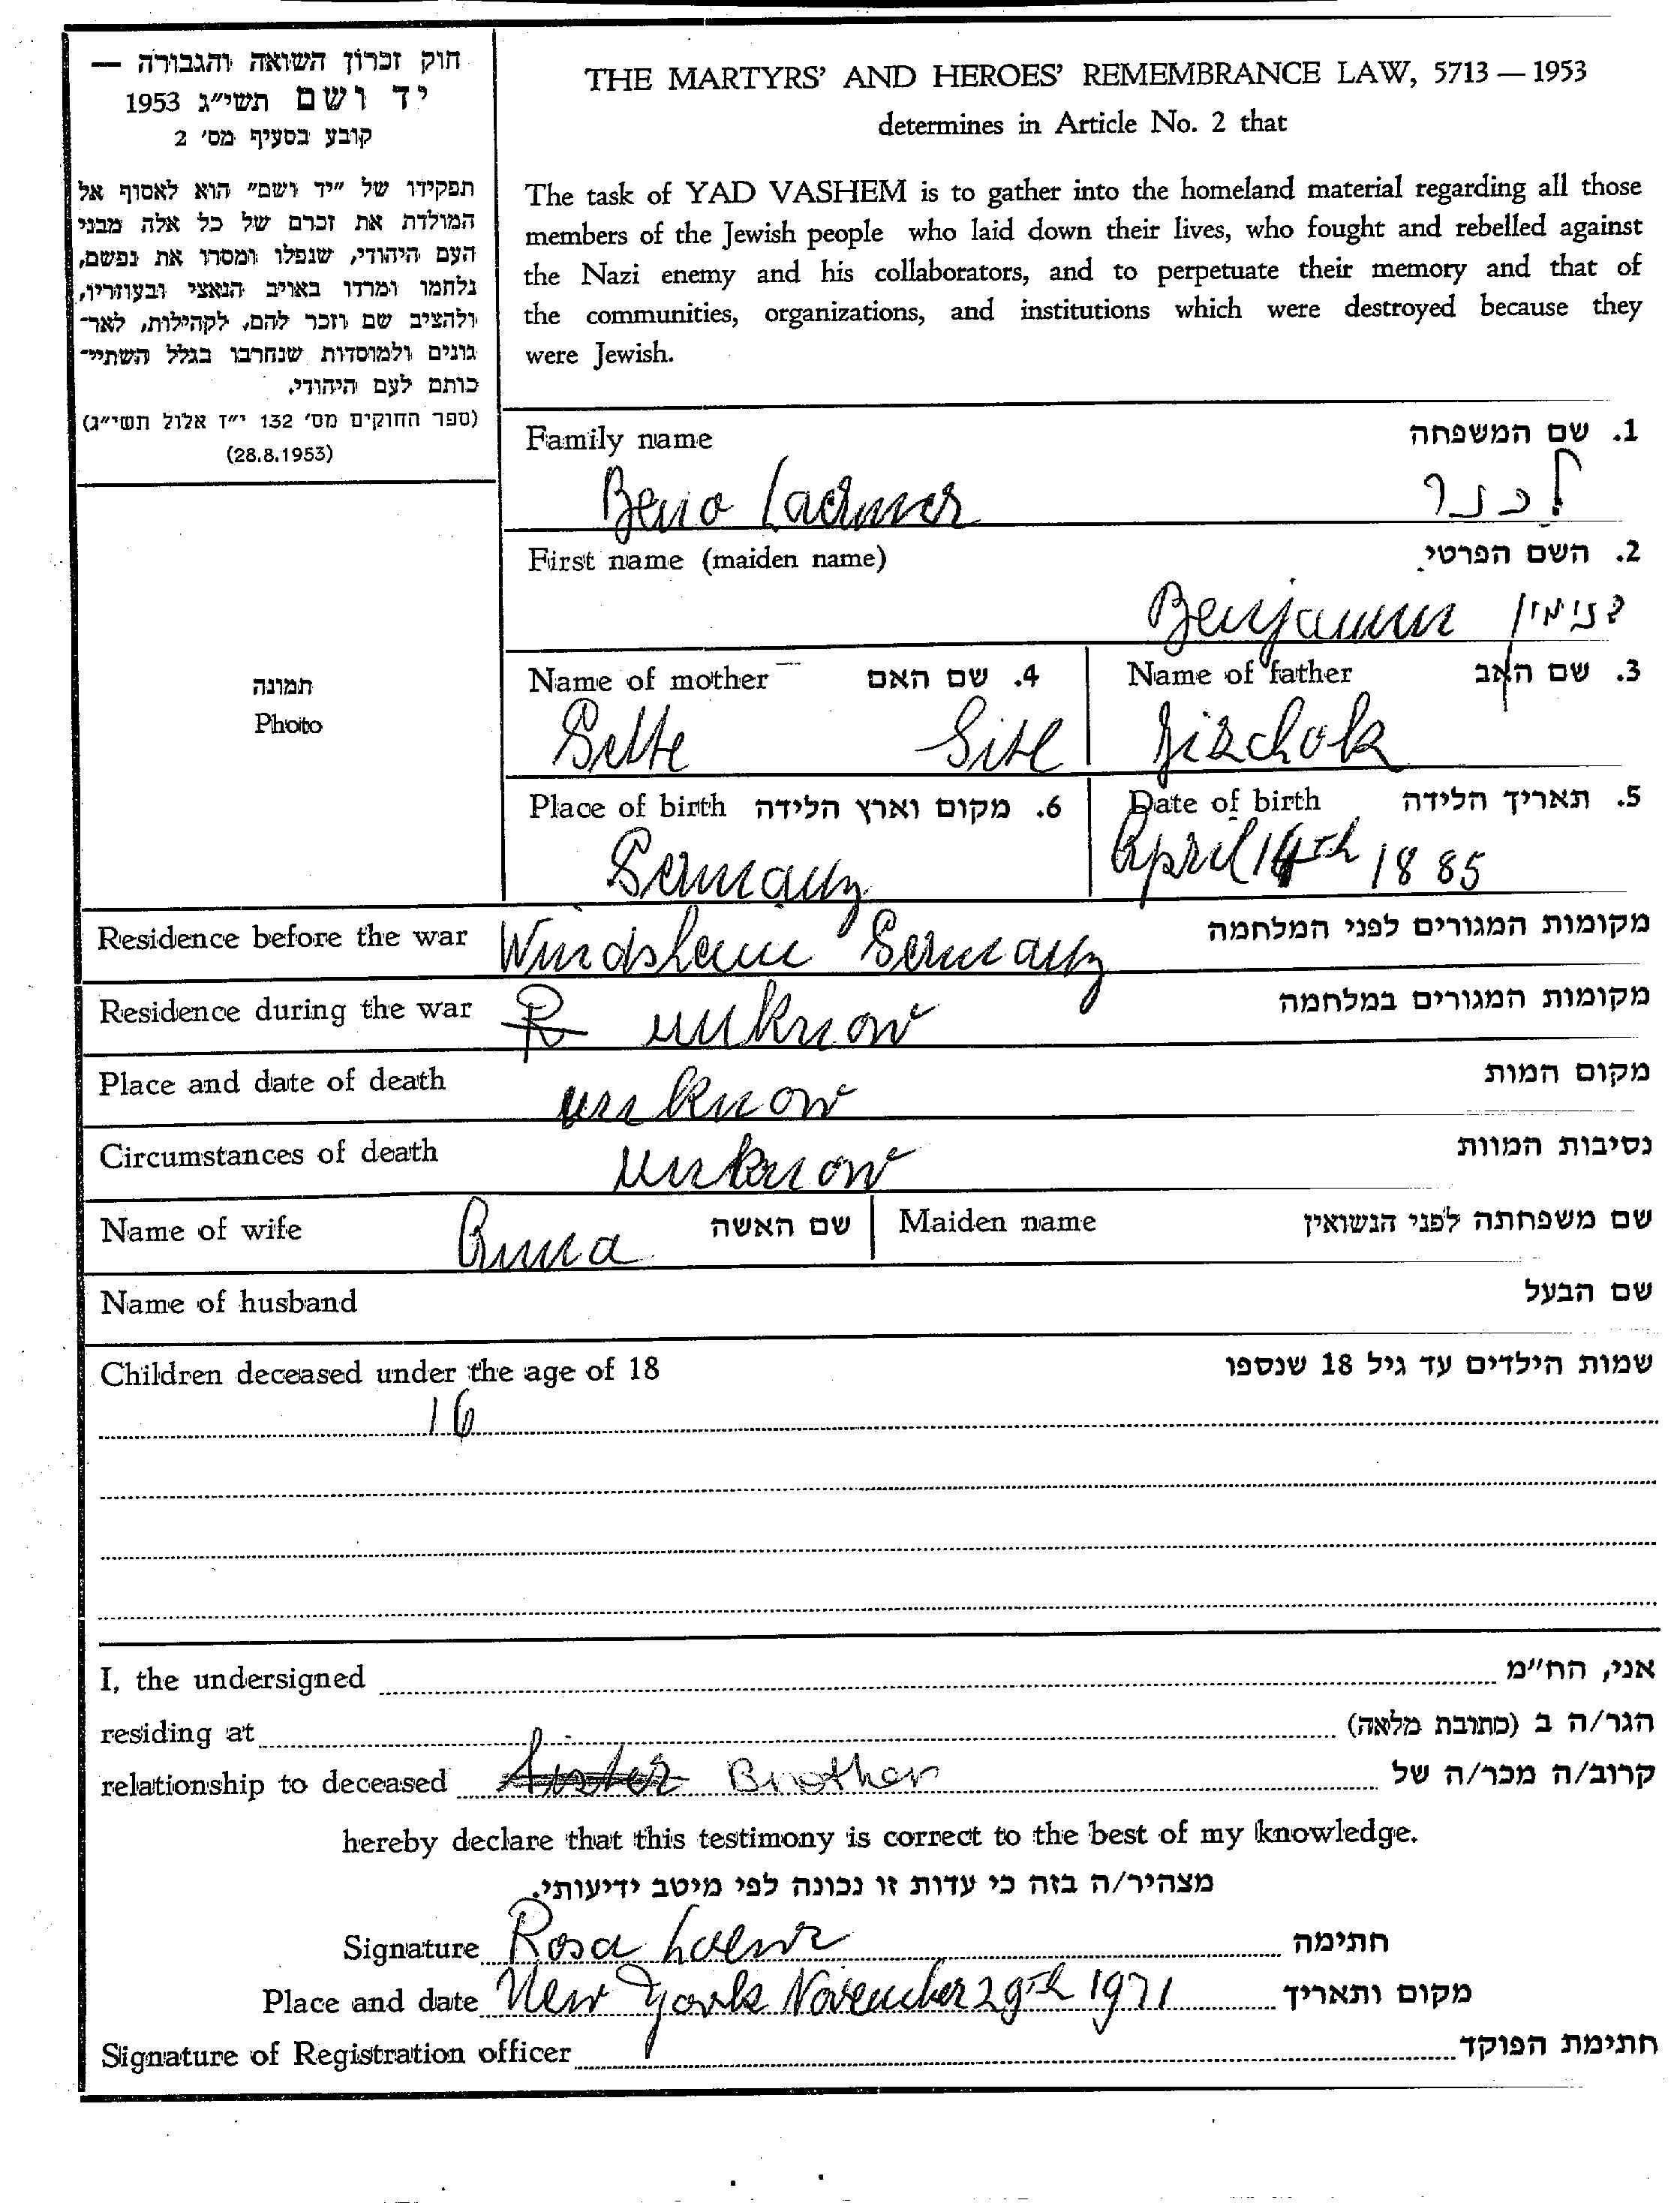 חוק זכרון השואה והגבורה —
יד ושם תשי״ג 1953
קובע בסעיף מס׳ 2
תפקידו של ״יד ושם״ הוא לאסוף אל
המולדת את זכרם של כל אלה מבני
העם היהודי, שנפלו ומסרו את נפשם,
נלחמו ומרדו באויב הנאצי ובעוזריו,
ולהציב שם וזכר להם, לקהילות, לאר־
גונים ולמוסדות שנחרבו בגלל השתיי־
כותם לעם היהודי.
(ספר החוקים מס׳ 132 י״ז אלול תשי״ג)
(28.8.1953)
תמונה
Photo
THE MARTYRS’ AND HEROES’ REMEMBRANCE LAW, 5713 — 1953
determines in Article No. 2 that
The task of YAD VASHEM is to gather into the homeland material regarding all those
members of the Jewish people who laid down their lives, who fought and rebelled against
the Nazi enemy and his collaborators, and to perpetuate their memory and that of
the communities, organizations, and institutions which were destroyed because they
were Jewish.
Family name 1. שם המשפחה
Beno Lachner לכנר
First name (maiden name) 2. השם הפרטי
Benjamin בנימין
Name of mother 4. שם האם Name of father 3. שם האב
Gitte Jizchok
Place of birth 6. מקום וארץ הלידה Date of birth 5. תאריך הלידה
Germany April 14th 1885
Residence before the war Windsheim Germany מקומות המגורים לפני המלחמה
Residence during the war R unknow מקומות המגורים במלחמה
Place and date of death unknow מקום המות
Circumstances of death unknow נסיבות המוות
Name of wife Anna שם האשה Maiden name שם משפחתה לפני הנשואין
Name of husband שם הבעל
Children deceased under the age of 18 שמות הילדים עד גיל 18 שנספו
16
I, the undersigned אני, הח״מ
residing at הגר/ה ב (כתובת מלאה)
relationship to deceased Sister Brother קרוב/ה מכר/ה של
hereby declare that this testimony is correct to the best of my knowledge.
מצהיר/ה בזה כי עדות זו נכונה לפי מיטב ידיעותי.
Signature Rosa חתימה
Place and date New York November 29th 1971 מקום ותאריך
Signature of Registration officer חתימת הפוקד